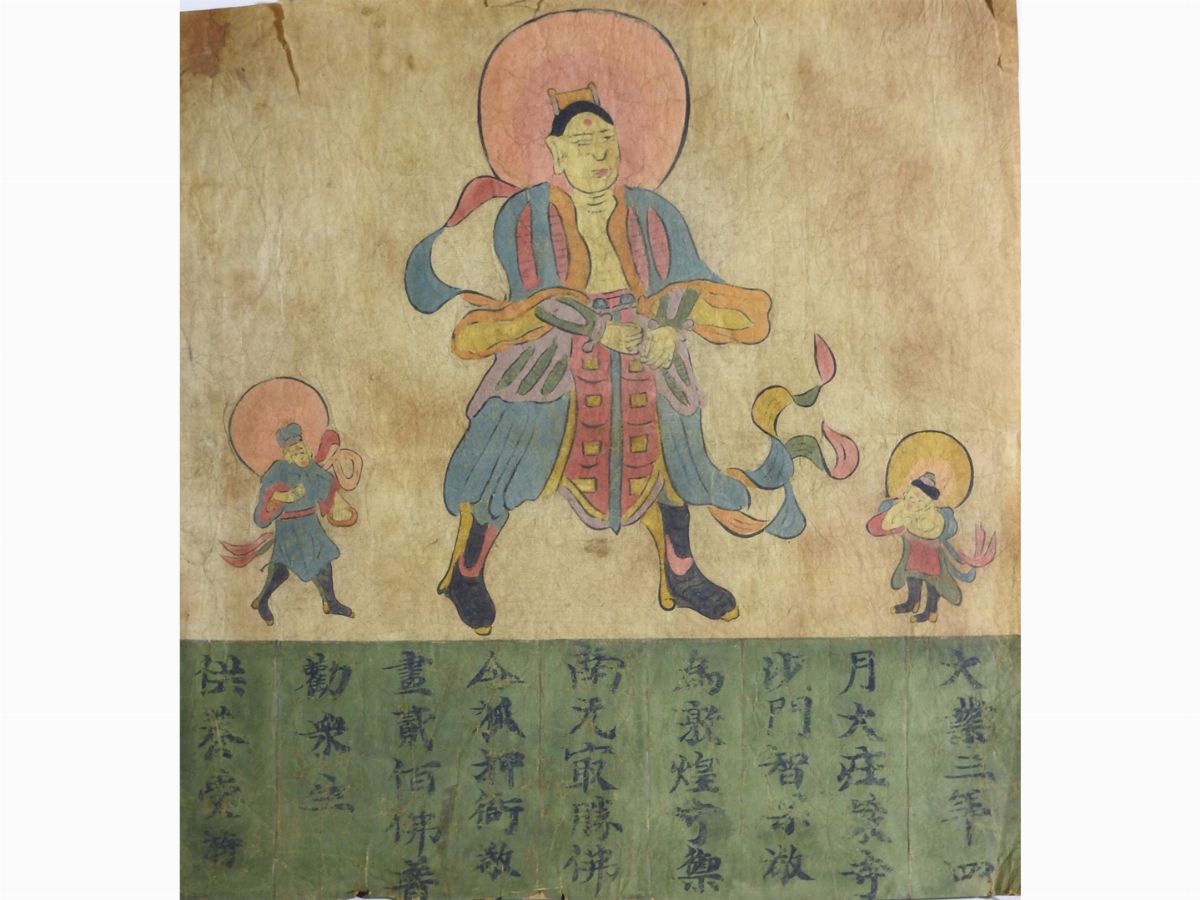 大業三年四
月大莊嚴寺
沙門智果敬
為敦煌守禦
南无㝡勝佛
令狐押衙敬
畫貳佰佛普
勸衆生
供養受持